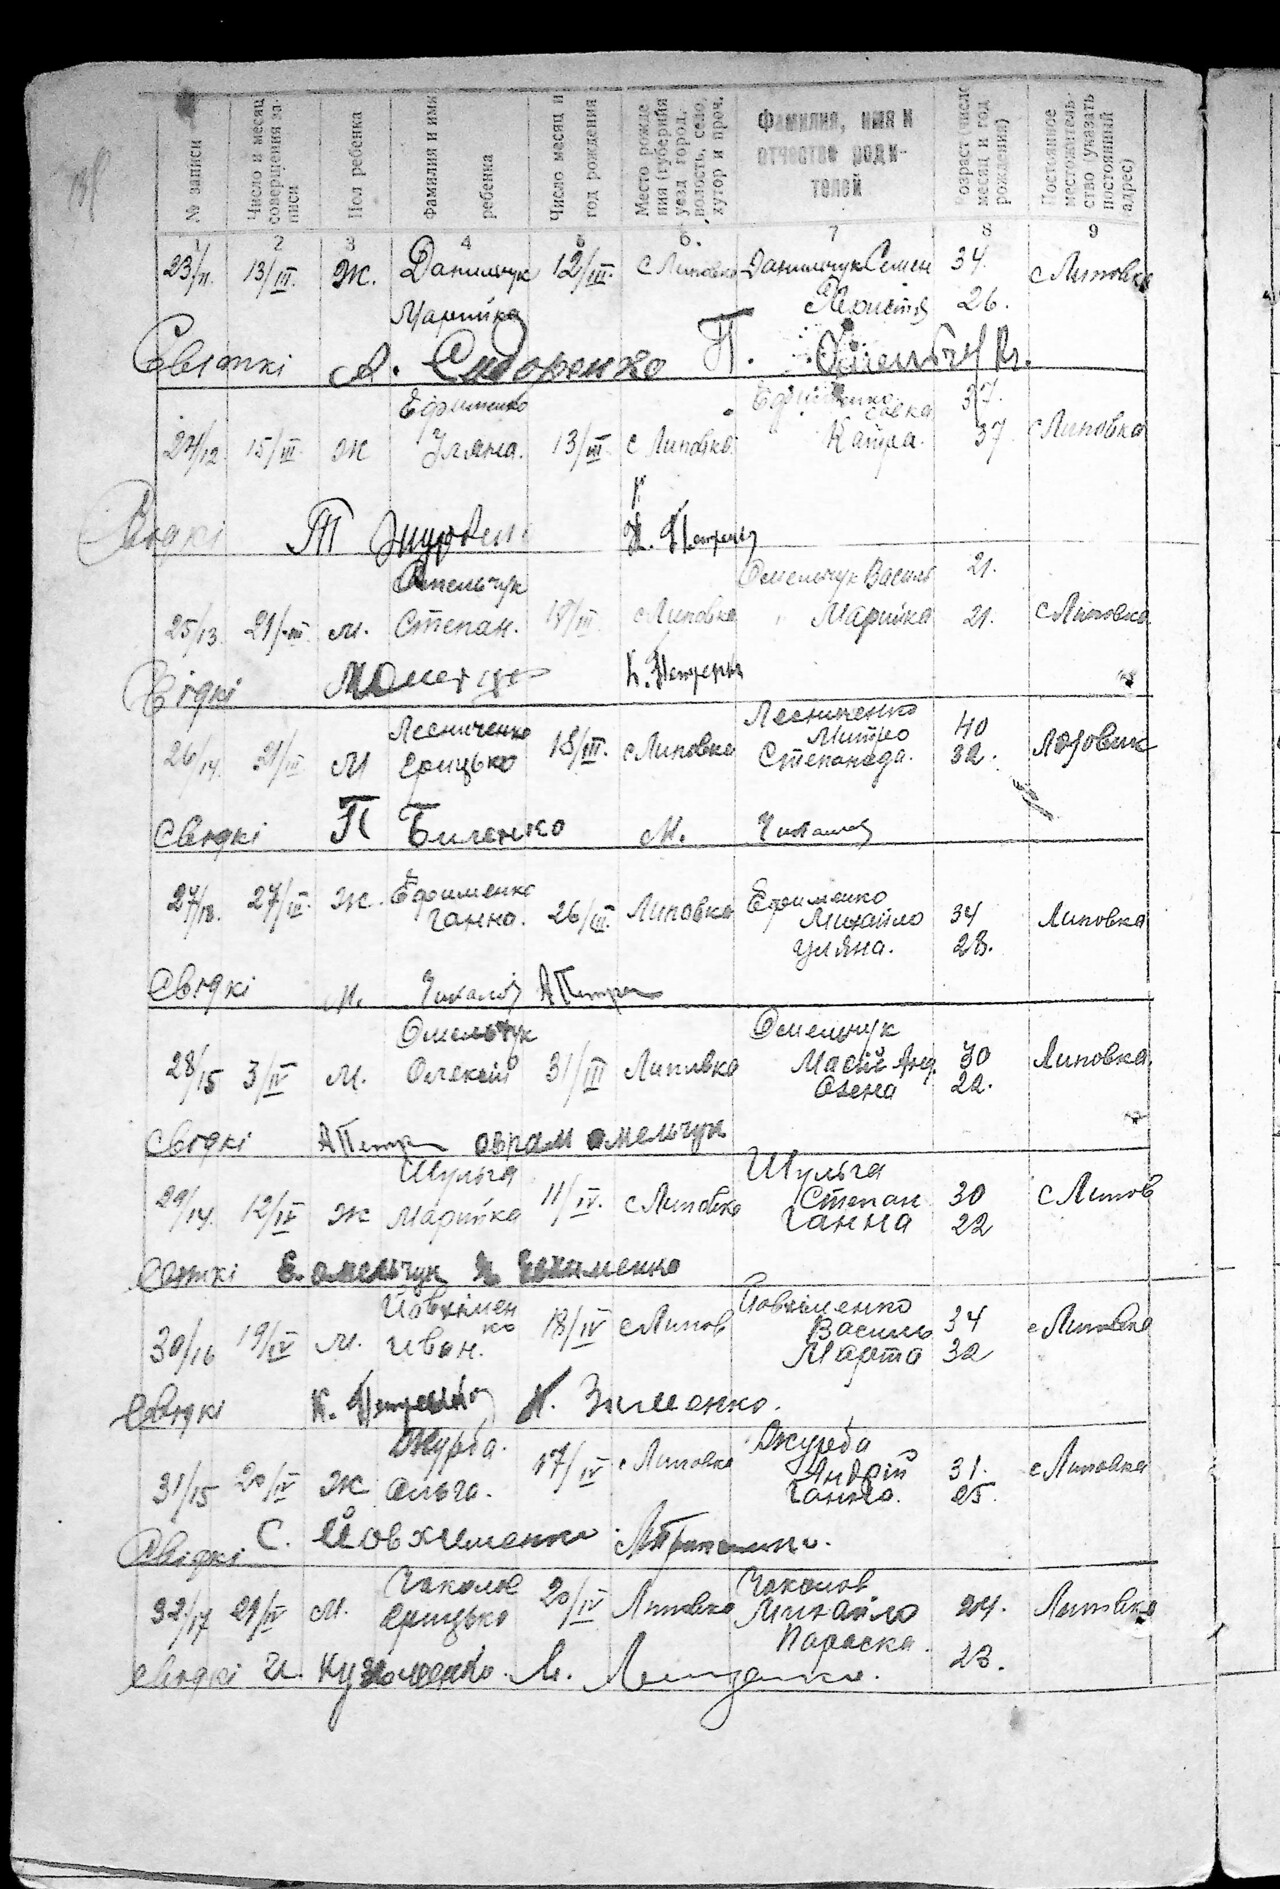 № записи
Число и месяц совершения записи
Пол ребенка
Фамилия и имя ребенка
Число месяц и год рождения
Место рождения (губерния уезд город, волость, село, хутор и проч.
Фамилия, имя и отчество родителей
Возраст (число месяц и год рождения)
Постоянное местожительство (указать постоянный адрес)
2 3 4 6. 7 8 9
23/11. 13/III. Ж. Данильчук 12/III. с Липовка Данильчук Семен 34. с Липовка
Марийка 26.
А. Сидоренко П.
Ефименко 37.
24/12. 15/III Ж Уляна. 13/III с Липовка Катра. 37 с Липовка
Т
Омельчук Омельчук Василь 21.
25/13. 21/III М. Степан. 18/III с Липовка Марийка 21. с Липовка
Свідкі
Лесниченко Лесниченко 40
26/14. 21/III М Грицько 18/III. с Липовка Митро
Степанада. 32.
Свідкі П Биленко М.
27/13. 27/III. Ж. Ефименко 26/III. Липовка Ефименко Липовка
Ганна. Михайло 34
Уляна. 28.
Свідкі М.
Омельчук Омельчук
28/15 3/IV М. Олексій 31/III Липивка 30 Липовка
22.
Свідкі А Петр оврам омельчук
Шульга Шульга
29/14. 12/IV Ж Марийка 11/IV. с Липовка Степан 30 с Липов
Ганна 22
Е. омельчук
Йовхимен Йовхименко
30/16 19/IV М. ко 18/IV с Липов Василь 34 с Липовка
Иван. Марта 32
Свідкі К. Зименко.
Журба. Журба
31/15 20/IV Ж Ольга. 17/IV с Липовка Андрій 31. с Липовка
Ганна. 25.
Свідкі С. Йовхименко
Чакалов Чакалов
32/17 21/IV М. Грицько 20/IV Липовка Михайло 24. Липовка
Параска. 23.
Свідкі И. Кузьменко